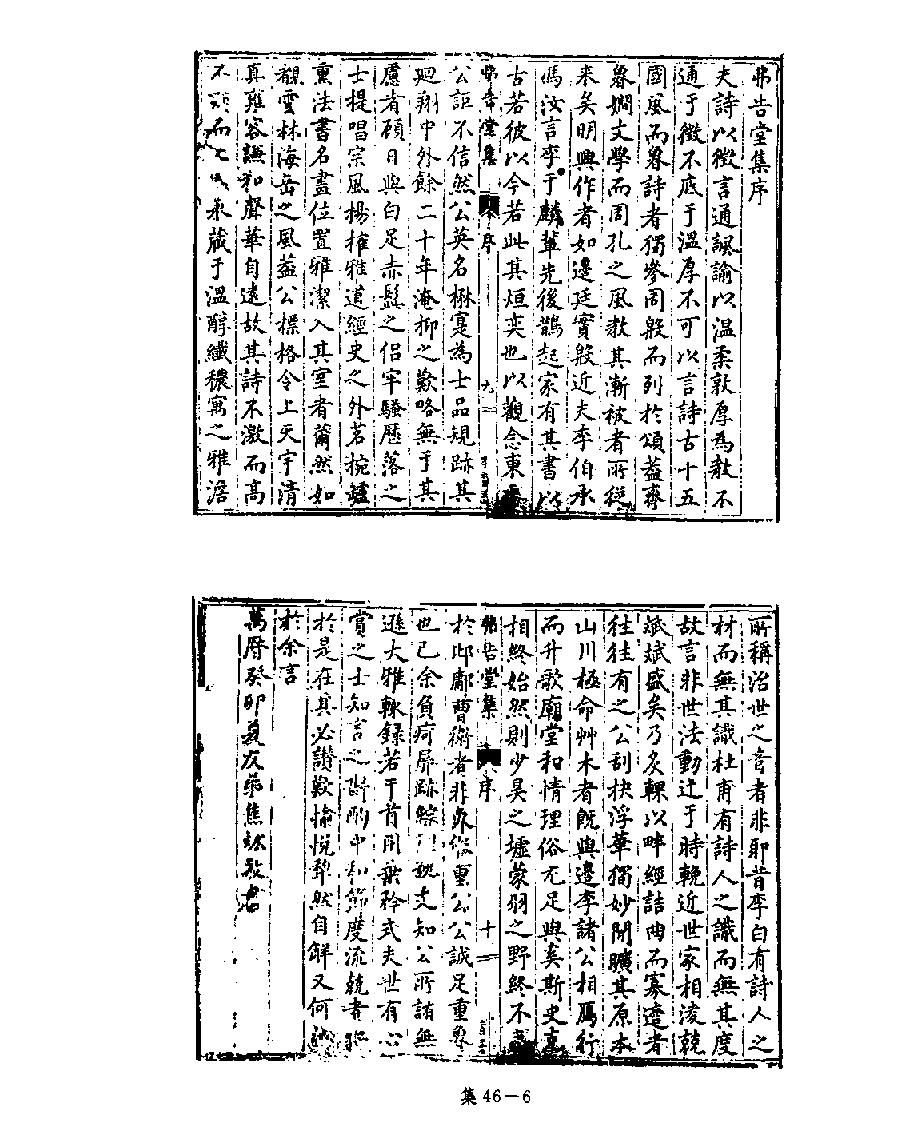 弗告堂集序
夫詩以微言通諷諭以溫柔敦厚為教不
通于微不底于溫厚不可以言詩古十五
國風而魯詩者獨參周殷而列於頌蓋齊
魯嫺文學而周孔之風教其漸被者所從
来矣明興作者如邊廷實殷近夫李伯承
馮汝言李于麟輩先後鵲起家有其書以
古若彼以今若此其烜奕也以觀念東
弗告堂集 序 九
公詎不信然公英名楙寔為士品規跡其
廻翔中外餘二十年淹抑之歎略無于其
慮者碩日與白足赤髭之侶牢騷歷落之
士提唱宗風揚搉雅道經史之外茗椀爐
熏法書名畫位置雅潔入其室者蕭然如
覯雲林海岳之風蓋公標格令上天宇清
真雍容謙和聲華自遠故其詩不激而高
不而藏于溫醇纖穠寓之雅澹
所稱治世之音者非耶昔李白有詩人之
材而無其識杜甫有詩人之識而無其度
故言非世法動迕于時輓近世家相凌兢
斌斌盛矣乃炙輠以畔經詰曲而寡遺者
往往有之公刮抉浮華獨妙閒曠其原本
山川極命艸木者既與邊李諸公相鴈行
而升歌廟堂和情理俗尤足與奚斯史克
相終始然則少昊之墟蒙羽之野終不
弗告堂集 序 十
於邶鄘曹衛者非魯重公公誠足重魯
也已余負痾屏跡文知公所詣無
遜大雅輒錄若干首用垂矜式夫世有心
賞之士知言之中和節度流兢者
於是在其必讚歎愉悅犂然自解又何
於余言
萬曆癸卯夏友弟焦竑敬書
集46－6